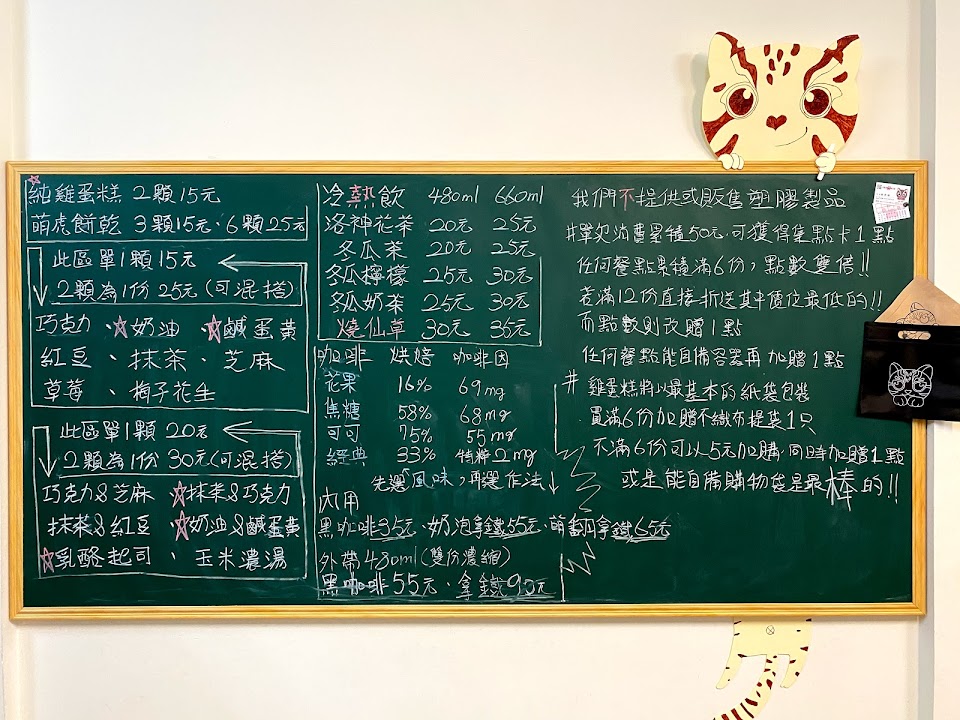 純雞蛋糕 2顆15元
萌虎餅乾 3顆15元、6顆25元
此區單1顆15元
2顆為1份 25元(可混搭)
巧克力、☆奶油、☆鹹蛋黃
紅豆、抹茶、芝麻
草莓、梅子花生
此區單1顆 20元
2顆為1份 30元(可混搭)
巧克力&芝麻 ☆抹茶&巧克力
抹茶&紅豆、☆奶油&鹹蛋黃
☆乳酪起司、玉米濃湯
冷熱飲 480ml 660ml
洛神花茶 20元 25元
冬瓜茶 20元 25元
冬瓜檸檬 25元 30元
冬瓜奶茶 25元 30元
燒仙草 30元 35元
咖啡 烘焙 咖啡因
花果 16% 69mg
焦糖 58% 68mg
可可 75% 55mg
經典 33% 特粹2mg
先選風味,再選作法↓
內用
黑咖啡35元、奶泡拿鐵55元、萌翻拿鐵65元
外帶480ml(雙份濃縮)
黑咖啡55元、拿鐵90元
我們不提供或販售塑膠製品
#單次消費累積50元可獲得集點卡1點
任何餐點累積滿6份,點數雙倍!!
若滿12份直接折送其中價位最低的!!
而點數則改贈1點
任何餐點能自備容器再加贈1點
# 雞蛋糕將以最基本的紙袋包裝
買滿6份加贈不織布提袋1只
不滿6份可以5元加購同時加贈1點
或是能自備購物袋是最棒的!!